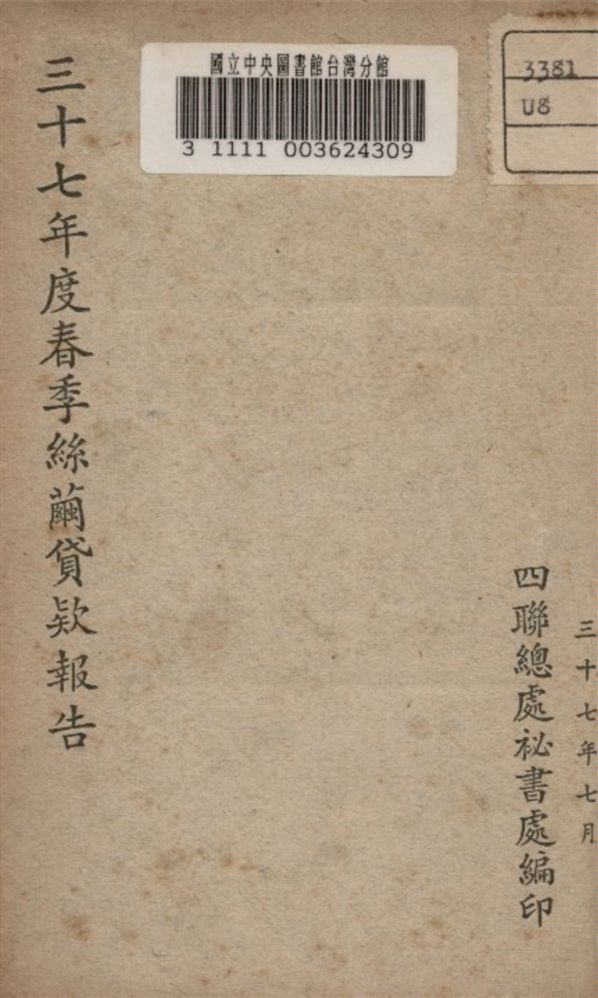 國立中央圖書館台灣分館
3 1111 003624309
3381
U8
三十七年度春季絲繭貸欵報告
四聯總處祕書處編印
三十七年七月